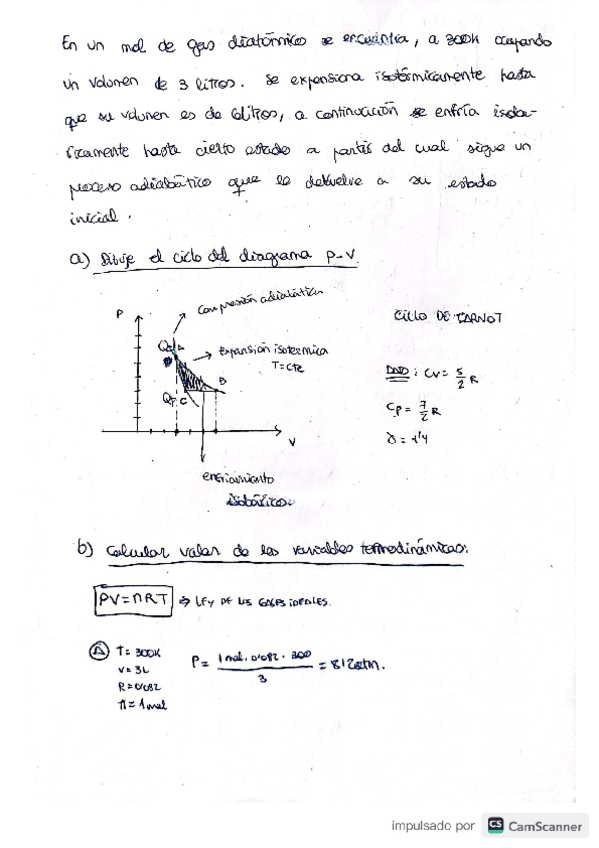 En un mol de gas diatómico se encuentra, a 300K ocupando
un volumen de 3 litros. Se expansiona isotérmicamente hasta
que su volumen es de 6 litros, a continuación se enfría isoba-
ricamente hasta cierto estado a partir del cual sigue un
proceso adiabático que lo devuelve a su estado
inicial.
a) Dibuje el ciclo del diagrama P-V
P
Compresión adiabática
Expansión isotermica
T=cte
A
B
C
V
enfriamiento
isobárico
CICLO DE CARNOT
DATO: CV = 5/2 R
CP = 7/2 R
γ = 1'4
b) Calcular valor de las variables termodinámicas:
PV=nRT ⇒ LEY DE LOS GASES IDEALES.
A T= 300K
V= 3L
R=0'082
n=1mol
P= 1mol. 0'082 . 300 / 3 = 8'2atm.
impulsado por CS CamScanner